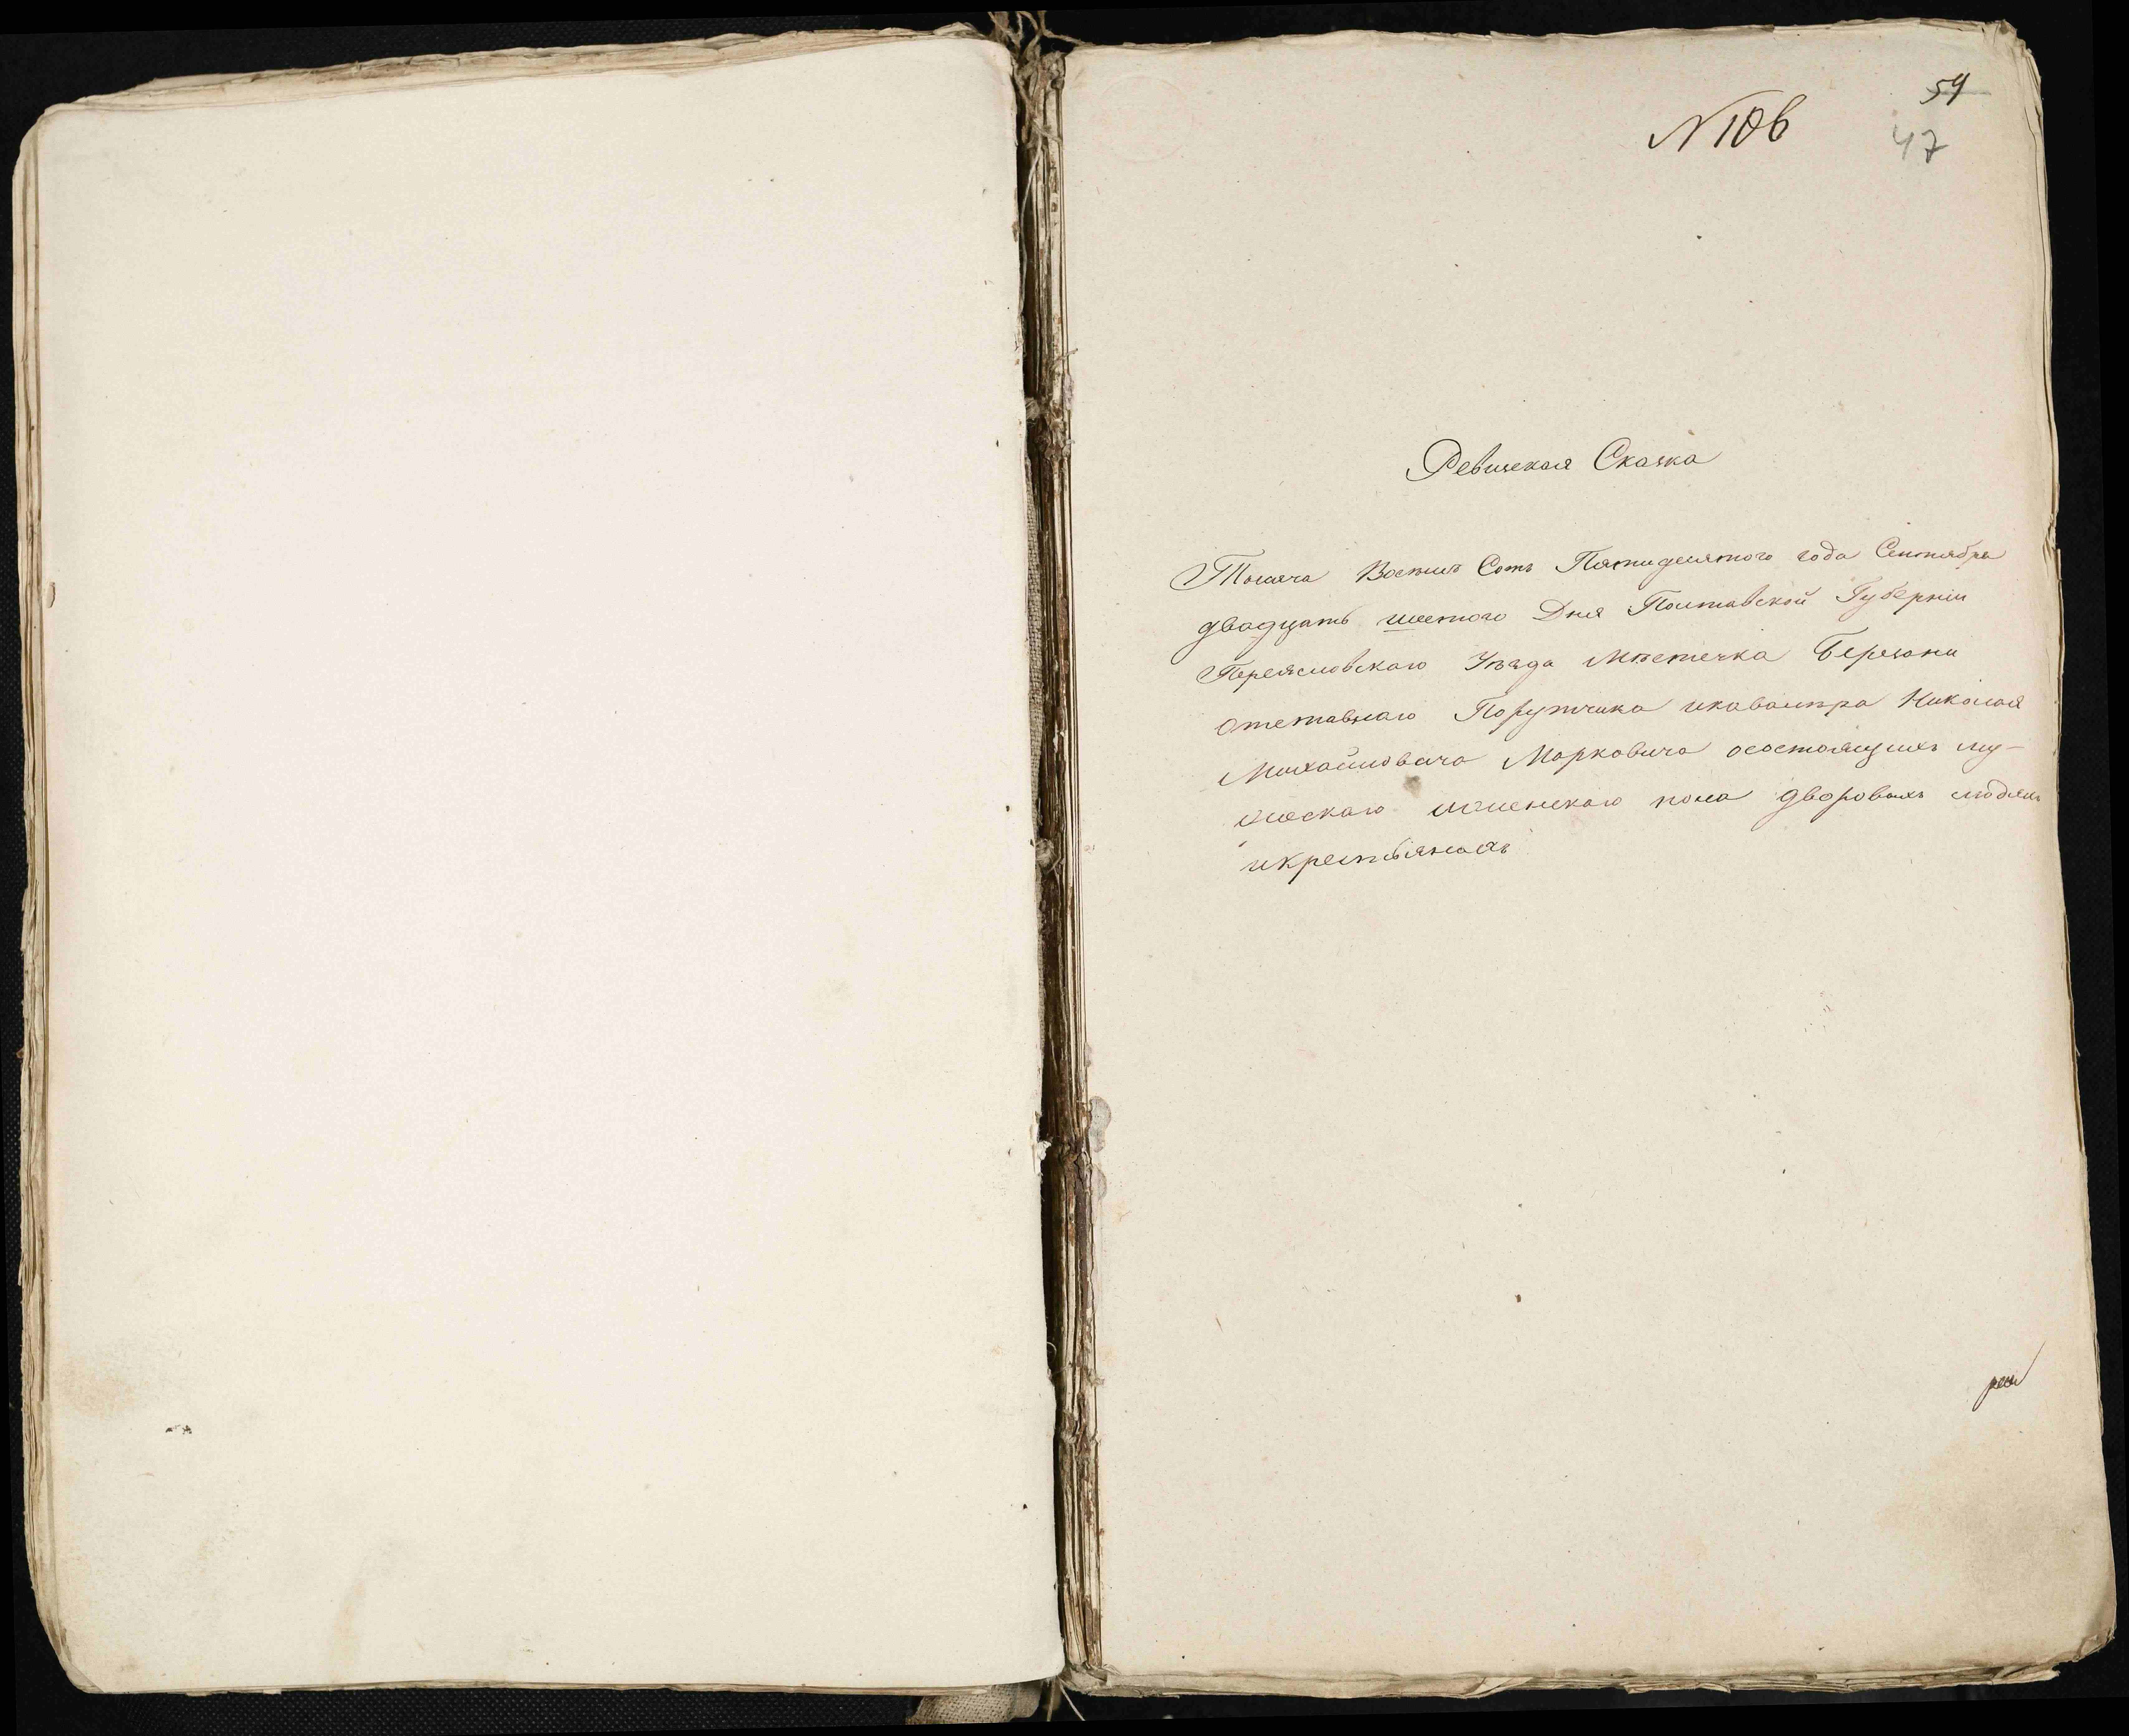 54
N 106
47
Ревижская Сказка
Тысяча Восемь Сотъ Пятидесятого года Сентября
двадцать шестого Дня Полтавской Губерніи
Переясловскаго Уѣзда Мѣстечка Березани
отставнаго Порутчика икавалера Николая
Михайловича Марковича осостоящихъ му-
жескаго иженскаго пола дворовыхъ людяхъ
икрестьянахъ